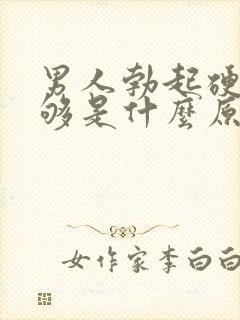 男人勃起硬
够是什麼原
女作家李白白